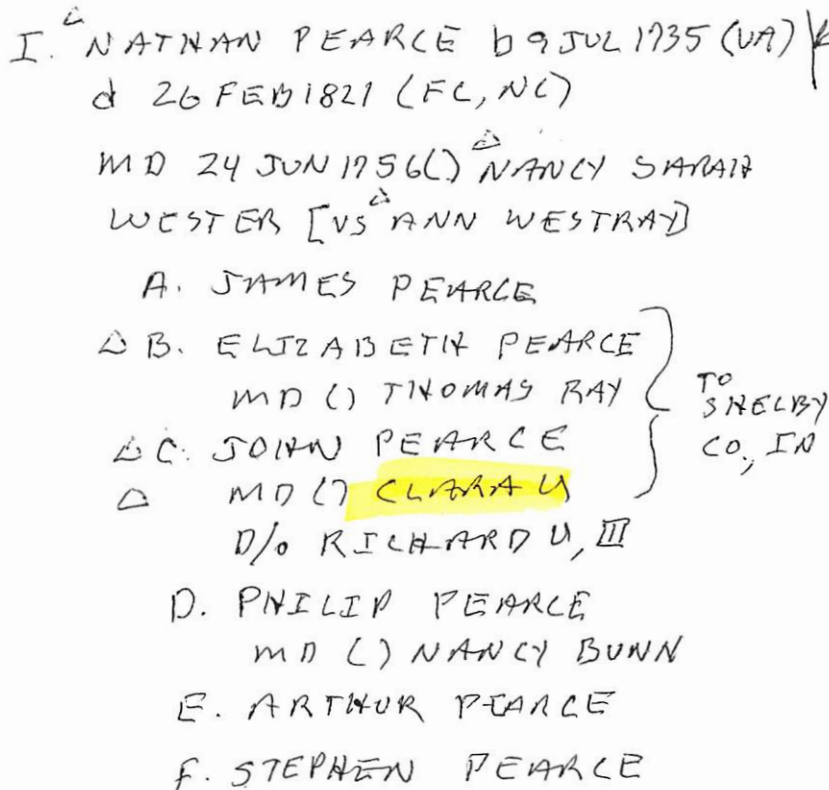 I. △ NATHAN PEARCE b 9 JUL 1735 (VA)
d 26 FEB 1821 (FC, NC)
MD 24 JUN 1756 () △ NANCY SARAH
WESTER [VS △ ANN WESTRAY]
A. JAMES PEARCE
△ B. ELIZABETH PEARCE
MD () THOMAS RAY
△ C. JOHN PEARCE
△ MD () CLARA U
D/o RICHARD U, III
TO
SHELBY
CO., IN
D. PHILIP PEARCE
MD () NANCY BUNN
E. ARTHUR PEARCE
F. STEPHEN PEARCE